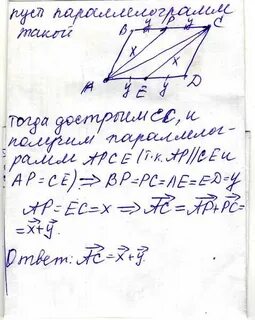 пуст параллелограмм
такой
B y P y C
x x
A y E y D
тогда достроим EC, и
получим параллелог-
рамм APCE (т.к. AP||CE и
AP=CE) ⇒ BP=PC=AE=ED=y
AP=EC=x ⇒ AC=AP+PC=
=x+y.
Ответ: AC=x+y.